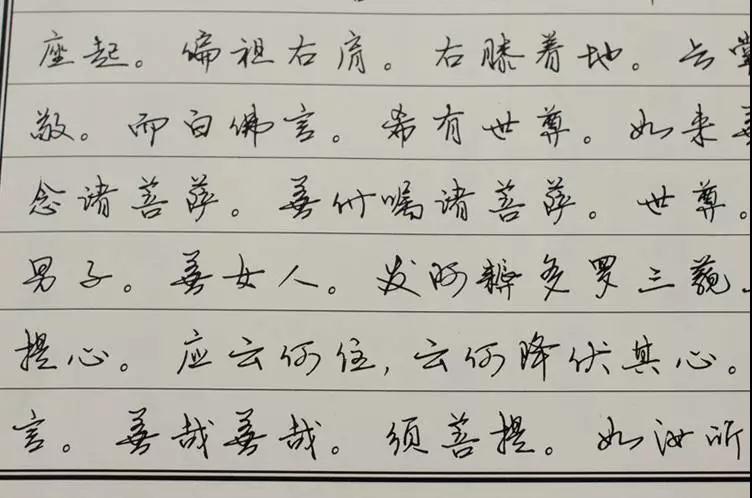 座起。偏袒右肩。右膝着地。合掌
敬。而白佛言。希有世尊。如来善
念诸菩萨。善付嘱诸菩萨。世尊。
男子。善女人。发阿耨多罗三藐三
提心。应云何住,云何降伏其心。
言。善哉善哉。须菩提。如汝所